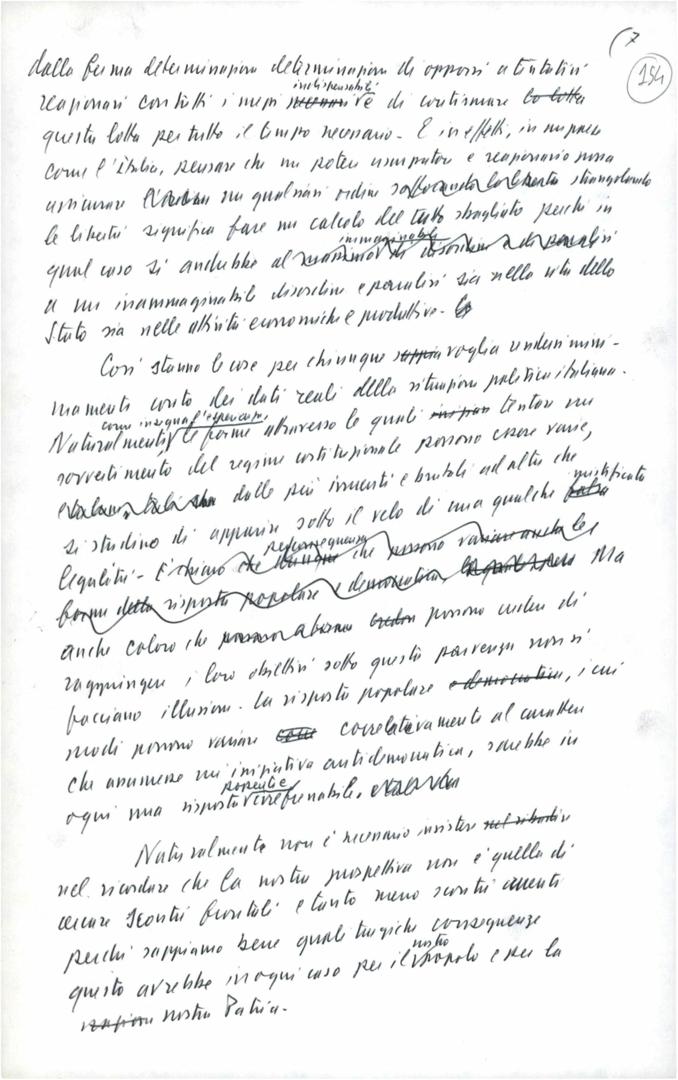 7
154
dalla ferma determinazione determinazione di opporsi a tentativi
indispensabili
reazionari con tutti i mezzi necessari e di continuare la lotta
questa lotta per tutto il tempo necessario - E in effetti, in un paese
come l'Italia, pensare che un potere usurpatore e reazionario possa
assicurare un qualsiasi ordine soffocando la libertà strangolando
le libertà significa fare un calcolo del tutto sbagliato perché in
immaginabile
qual caso si andrebbe al massimo di disordine e di paralisi
a un inammaginabile disordine e paralisi sia nella vita dello
Stato sia nelle attività economiche e produttive -
Così stanno le cose per chiunque sappia voglia rendersi mini-
mamente conto dei dati reali della situazione politica italiana.
come insegna l'esperienza,
Naturalmente, le forme attraverso le quali tentare un
sovvertimento del regime costituzionale possono essere varie,
dalle più irruenti e brutali ad altre che
mistificata
si studino di apparire sotto il velo di una qualche falsa
legalità - È chiaro che dunque che possono variare anche le
per conseguenza
forme della risposta popolare e democratica Ma
anche coloro che credono possono credere di
raggiungere i loro obiettivi sotto questa parvenza non si
facciano illusioni. La risposta popolare e democratica, i cui
modi possono variare come correlativamente al carattere
che assumesse un'iniziativa antidemocratica, sarebbe in
possente e
ogni una risposta irrefrenabile.
Naturalmente non è necessario insistere nel ribadire
nel ricordare che la nostra prospettiva non è quella di
cercare scontri frontali e tanto meno scontri cruenti
perché sappiamo bene quali tragiche conseguenze
nostro
questo avrebbe in ogni caso per il popolo e per la
nazione nostra Patria -